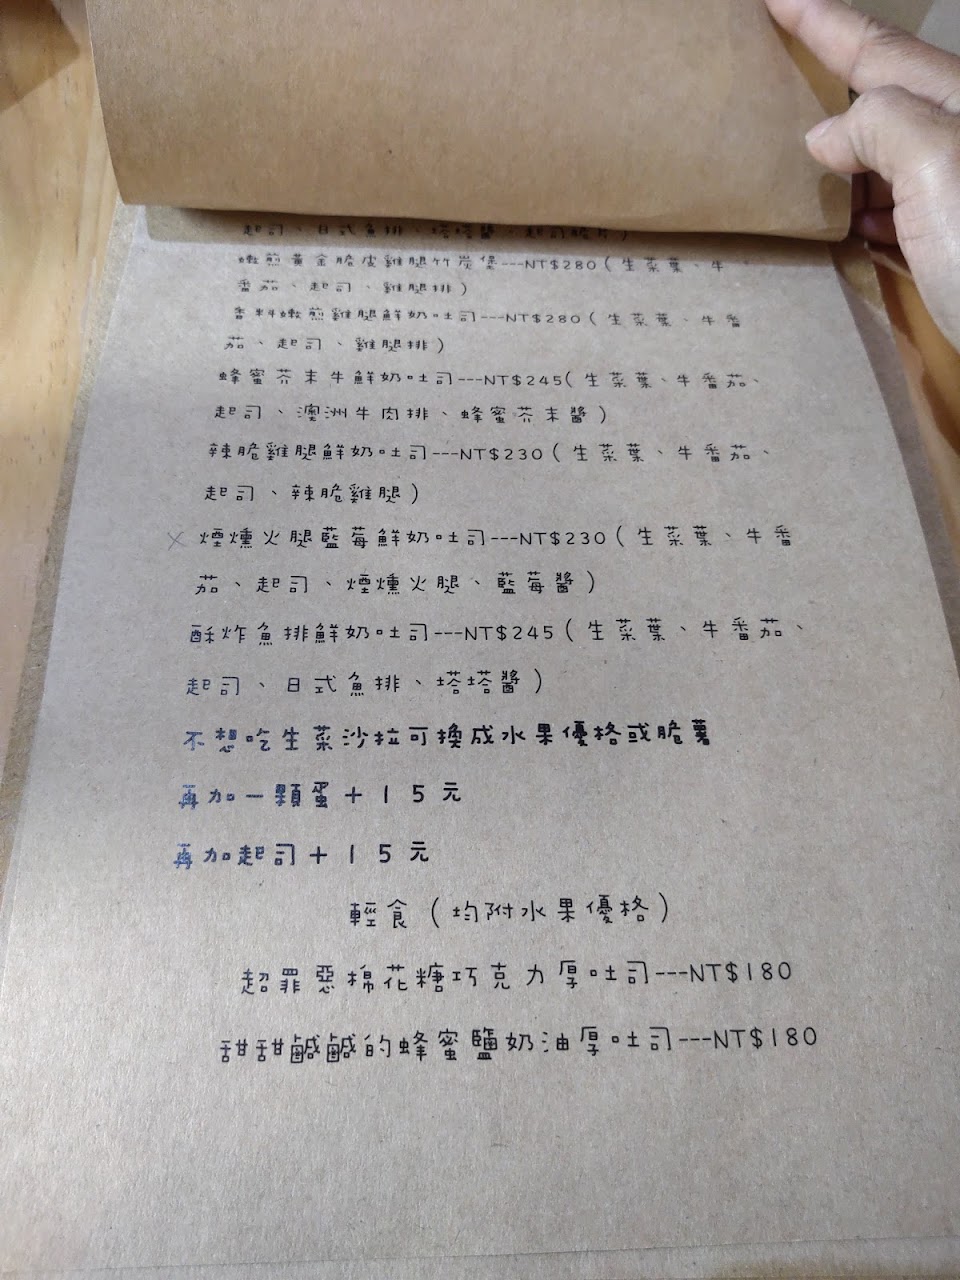 起司、日式魚排、塔塔醬、起司脆片)
嫩煎黃金脆皮雞腿竹炭堡---NT$280(生菜葉、牛
番茄、起司、雞腿排)
香料嫩煎雞腿鮮奶吐司---NT$280(生菜葉、牛番
茄、起司、雞腿排)
蜂蜜芥末牛鮮奶吐司---NT$245(生菜葉、牛番茄、
起司、澳洲牛肉排、蜂蜜芥末醬)
辣脆雞腿鮮奶吐司---NT$230(生菜葉、牛番茄、
起司、辣脆雞腿)
× 煙燻火腿藍莓鮮奶吐司---NT$230(生菜葉、牛番
茄、起司、煙燻火腿、藍莓醬)
酥炸魚排鮮奶吐司---NT$245(生菜葉、牛番茄、
起司、日式魚排、塔塔醬)
不想吃生菜沙拉可換成水果優格或脆薯
再加一顆蛋+15元
再加起司+15元
輕食(均附水果優格)
超罪惡棉花糖巧克力厚吐司---NT$180
甜甜鹹鹹的蜂蜜鹽奶油厚吐司---NT$180